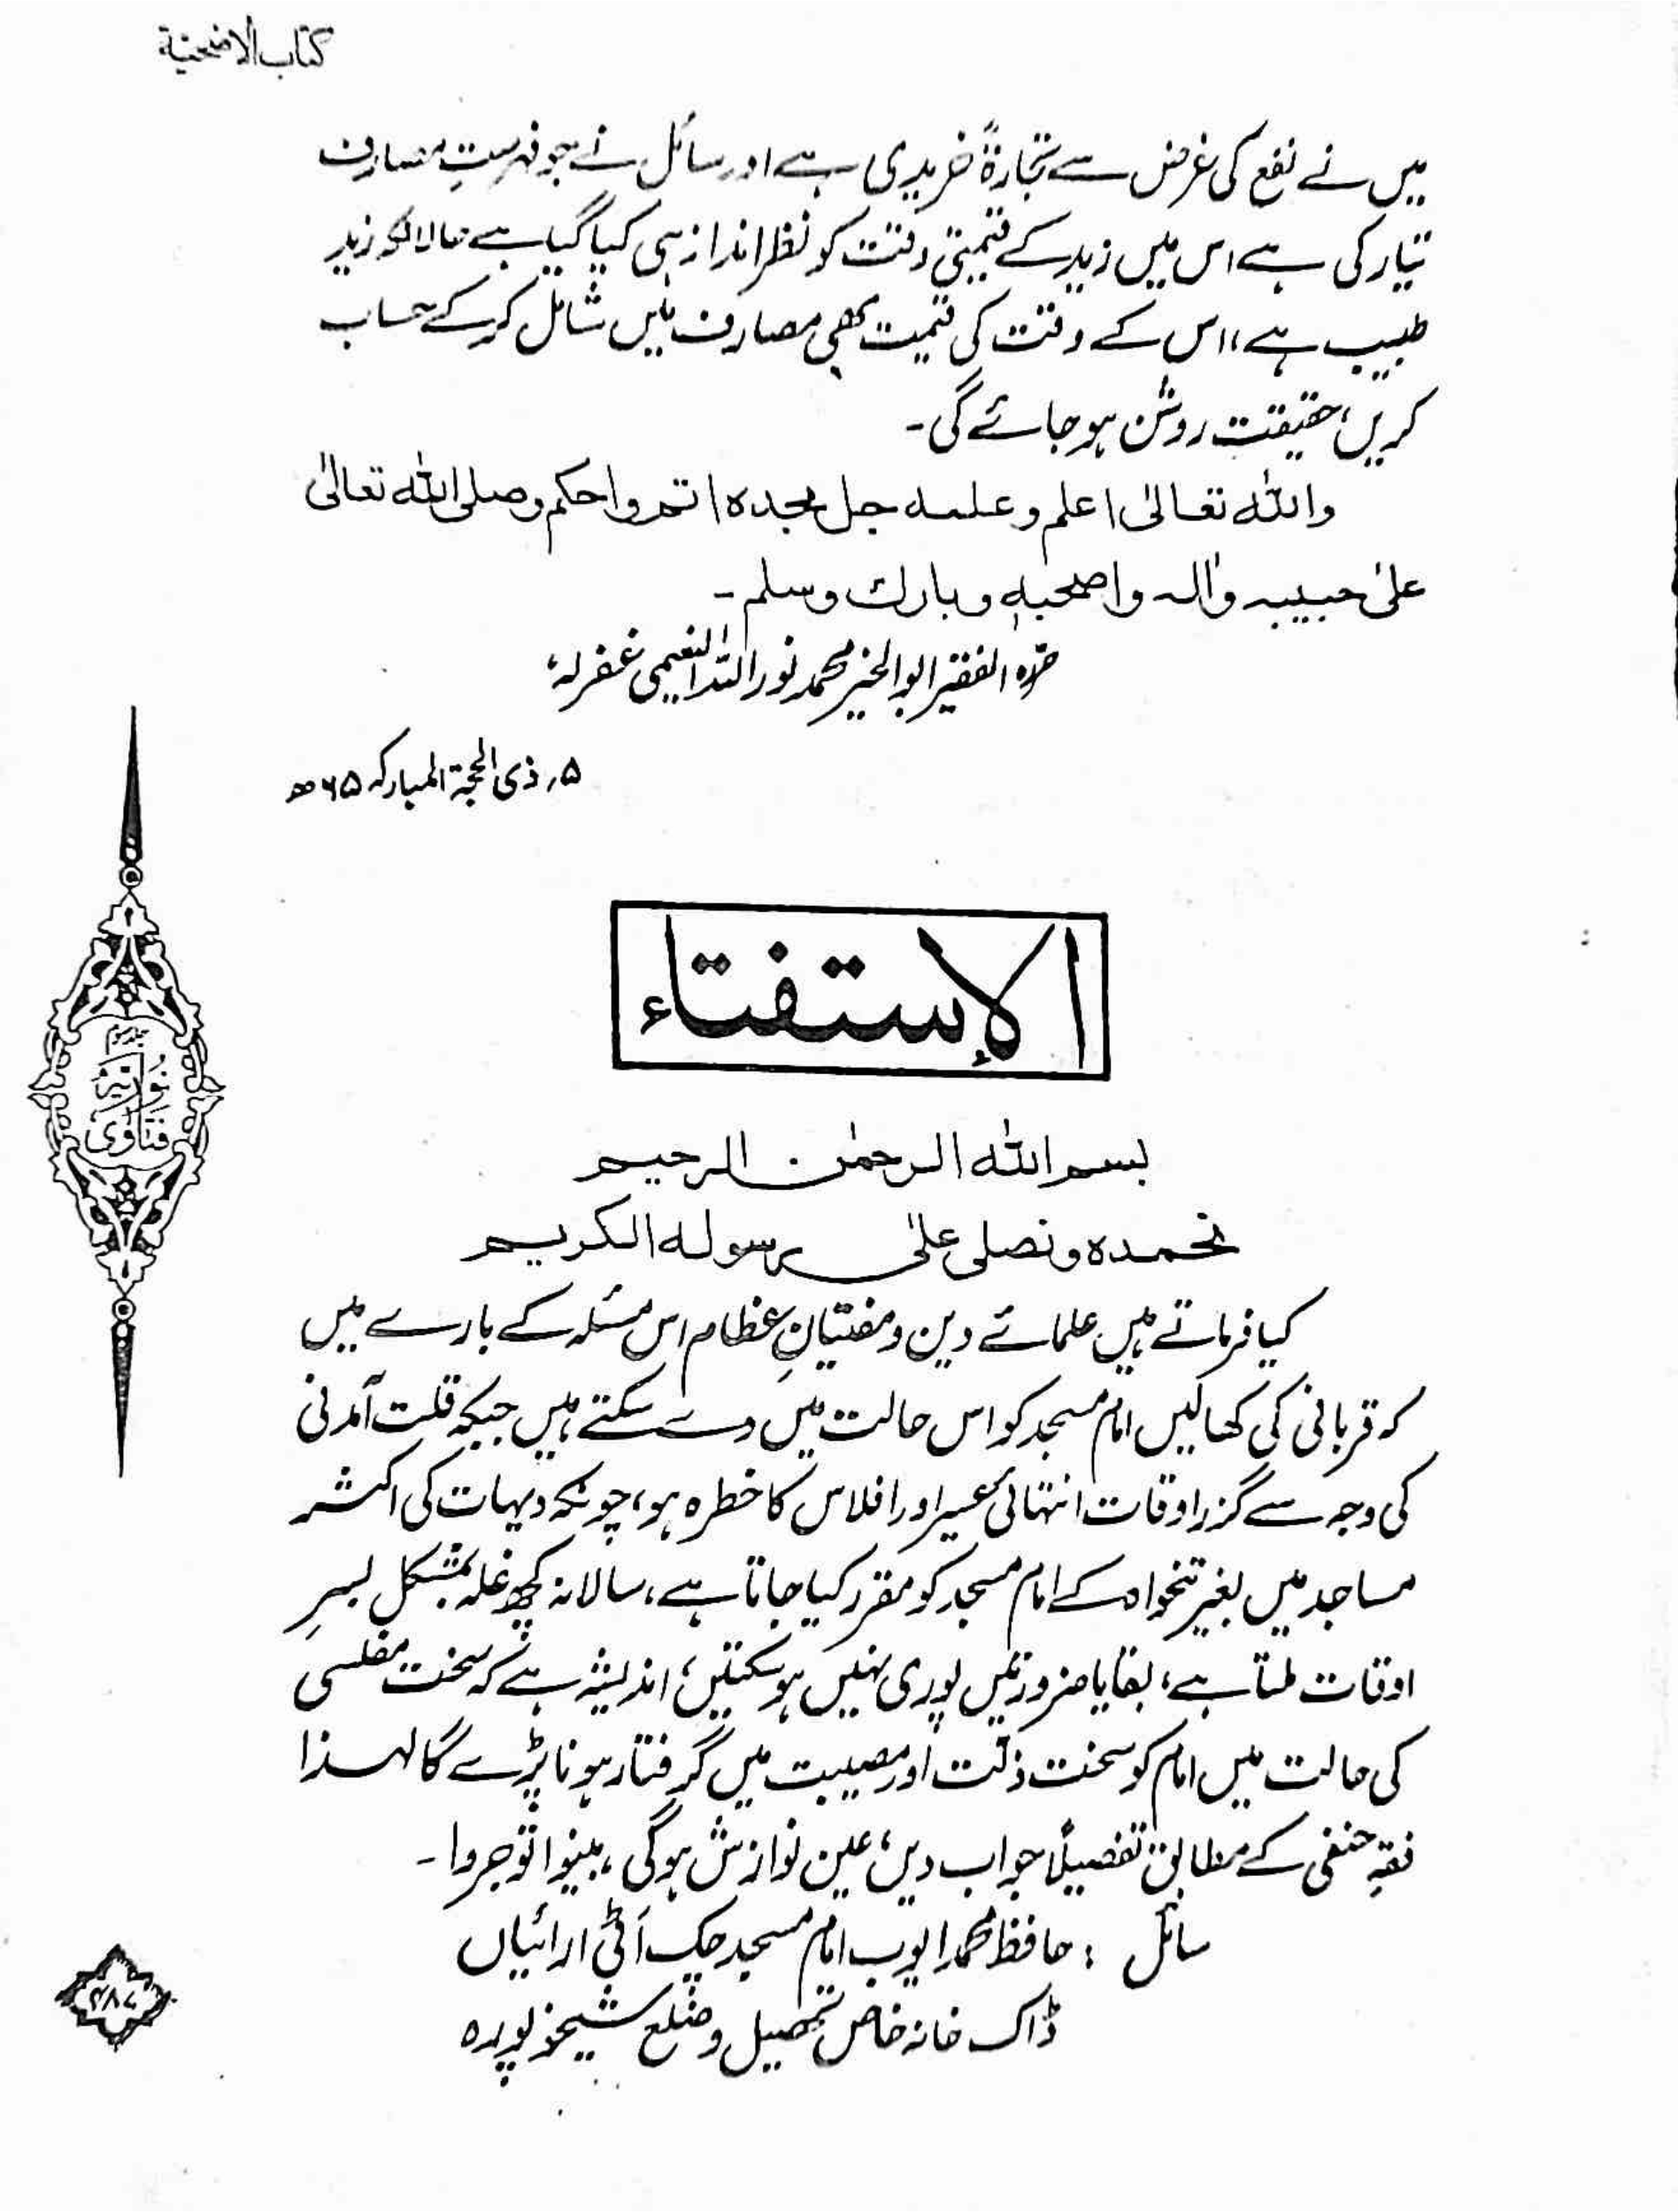 كتاب الاضحية
میں نے نفع کی غرض سے تجارۃً خریدی ہے اور سائل نے جو فہرستِ مصارف
تیار کی ہے اس میں زید کے قیمتی وقت کو نظر انداز ہی کیا گیا ہے حالانکہ زید
طبیب ہے، اس کے وقت کی قیمت بھی مصارف میں شامل کر کے حساب
کریں، حقیقت روشن ہو جائے گی۔
والله تعالىٰ اعلم وعلمه جل مجده اتم واحكم وصلى الله تعالىٰ
علىٰ حبيبه واٰله واصحٰبه وبارك وسلم۔
حررہ الفقیر ابوالخیر محمد نور اللہ النعیمی غفرلہ،
۵؍ ذی الحجۃ المبارکہ ۶۵ھ
الإستفتاء
بسم الله الرحمٰن الرحيم
نحمده ونصلى علىٰ رسوله الكريم
کیا فرماتے ہیں علمائے دین و مفتیانِ عظام اس مسئلہ کے بارے میں
کہ قربانی کی کھالیں امام مسجد کو اس حالت میں دے سکتے ہیں جبکہ قلت آمدنی
کی وجہ سے گزر اوقات انتہائی عسیر اور افلاس کا خطرہ ہو، چونکہ دیہات کی اکثر
مساجد میں بغیر تنخواہ کے امام مسجد کو مقرر کیا جاتا ہے، سالانہ کچھ غلہ بمشکل بسرِ
اوقات ملتا ہے، بقایا ضرورتیں پوری نہیں ہو سکتیں، اندیشہ ہے کہ سخت مفلسی
کی حالت میں امام کو سخت ذلّت اور مصیبت میں گرفتار ہونا پڑے گا لہٰذا
فقہِ حنفی کے مطابق تفصیلاً جواب دیں، عین نوازش ہوگی، بینوا توجروا۔
سائل : حافظ محمد ایوب امام مسجد چک آٹی ارائیاں
ڈاک خانہ خاص تحصیل و ضلع شیخوپورہ
نوریہ
فتاویٰ
۳۸۷